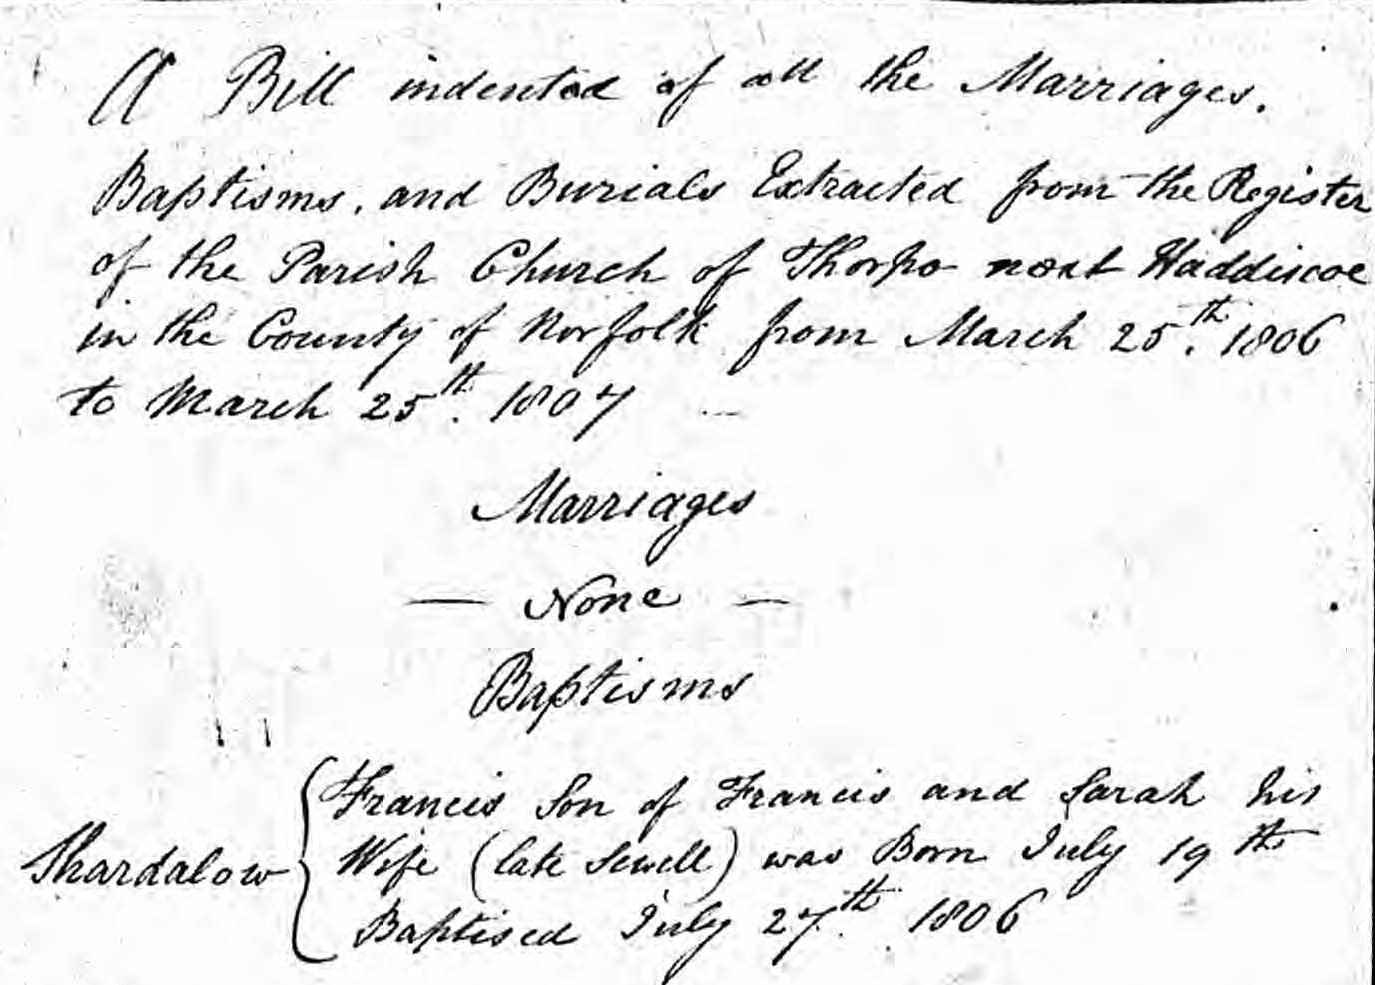 A Bill indented of all the Marriages.
Baptisms, and Burials Extracted from the Register
of the Parish Church of Thorpe next Haddiscoe
in the County of Norfolk from March 25th. 1806
to March 25th. 1807
Marriages
— None —
Baptisms
Francis Son of Francis and Sarah his
Shardalow Wife (late Sewell) was Born July 19th
Baptised July 27th. 1806